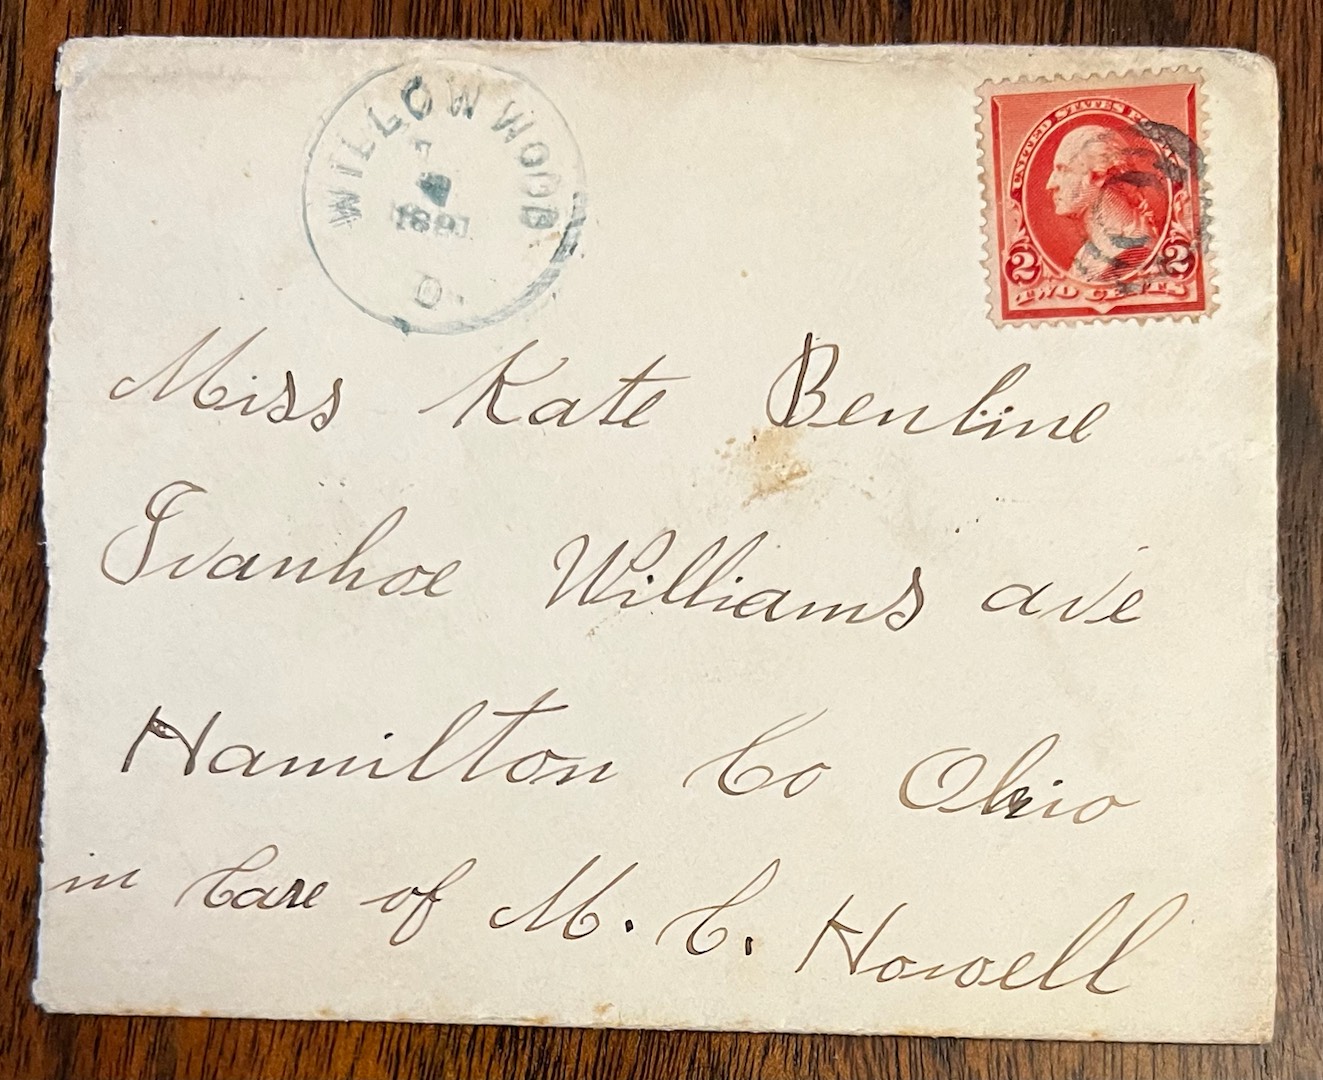 WILLOW WOOD
1891
O.
UNITED STATES
2 2
TWO CENTS
Miss Kate Bentine
Ivanhoe Williams ave
Hamilton Co Ohio
in Care of M. C. Howell